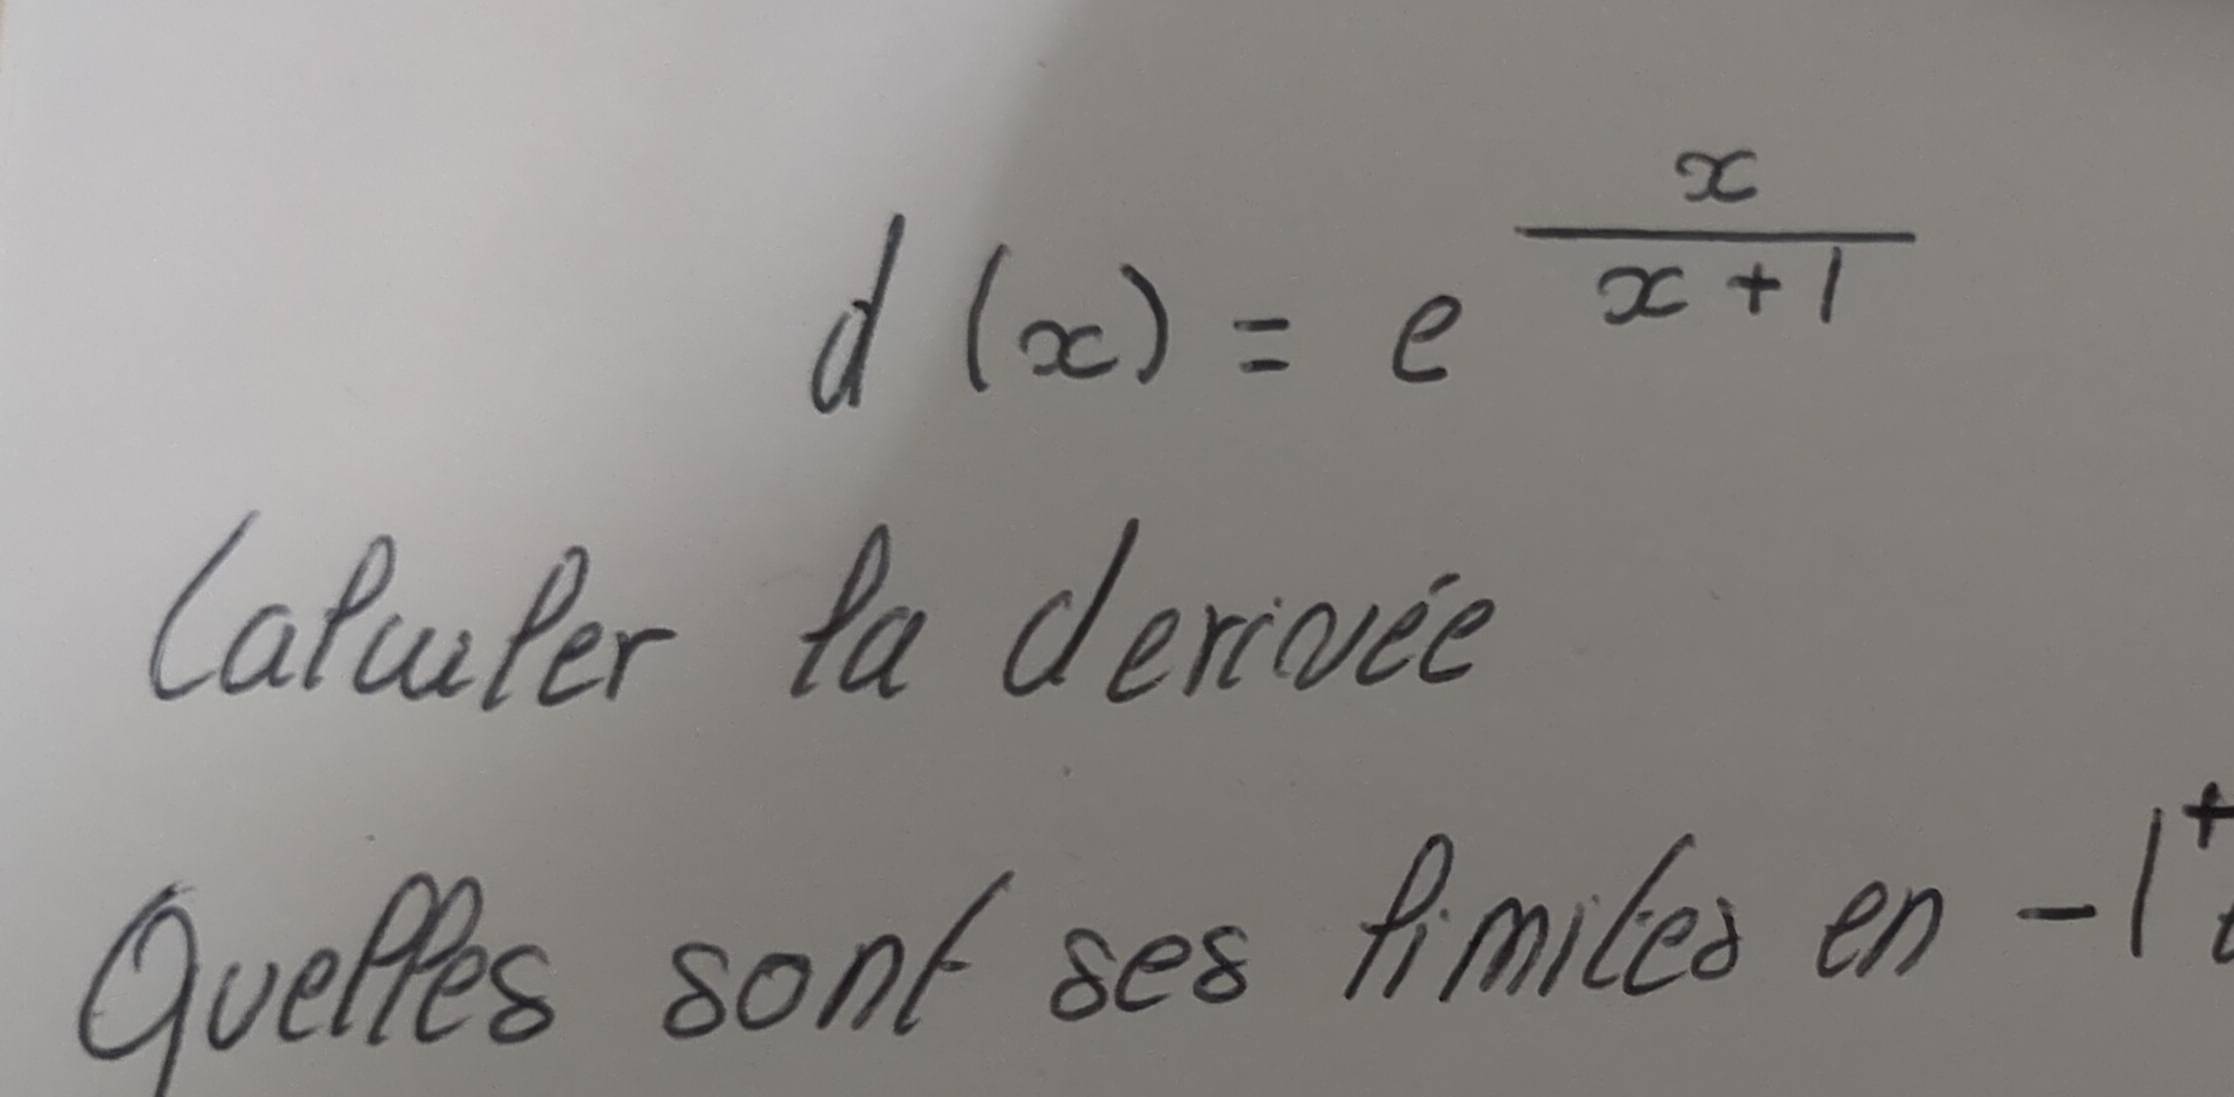 d(x) = e^{\frac{x}{x+1}}
Calculer la derivée
Quelles sont ses limites en -1^+